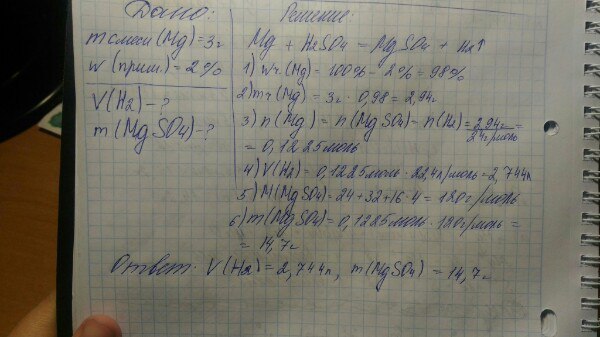 Дано:
m смеси (Mg) = 3г
w (прим.) = 2%
V(H2) - ?
m(MgSO4) - ?
Решение:
Mg + H2SO4 = MgSO4 + H2↑
1) wч.(Mg) = 100% - 2% = 98%
2) mч(Mg) = 3г · 0,98 = 2,94г
3) n(Mg) = n(MgSO4) = n(H2) = 2,94г / 24г/моль =
= 0,1225моль
4) V(H2) = 0,1225моль · 22,4л/моль = 2,744л
5) M(MgSO4) = 24+32+16·4 = 120г/моль
6) m(MgSO4) = 0,1225моль · 120г/моль =
= 14,7г
Ответ: V(H2) = 2,744л, m(MgSO4) = 14,7г